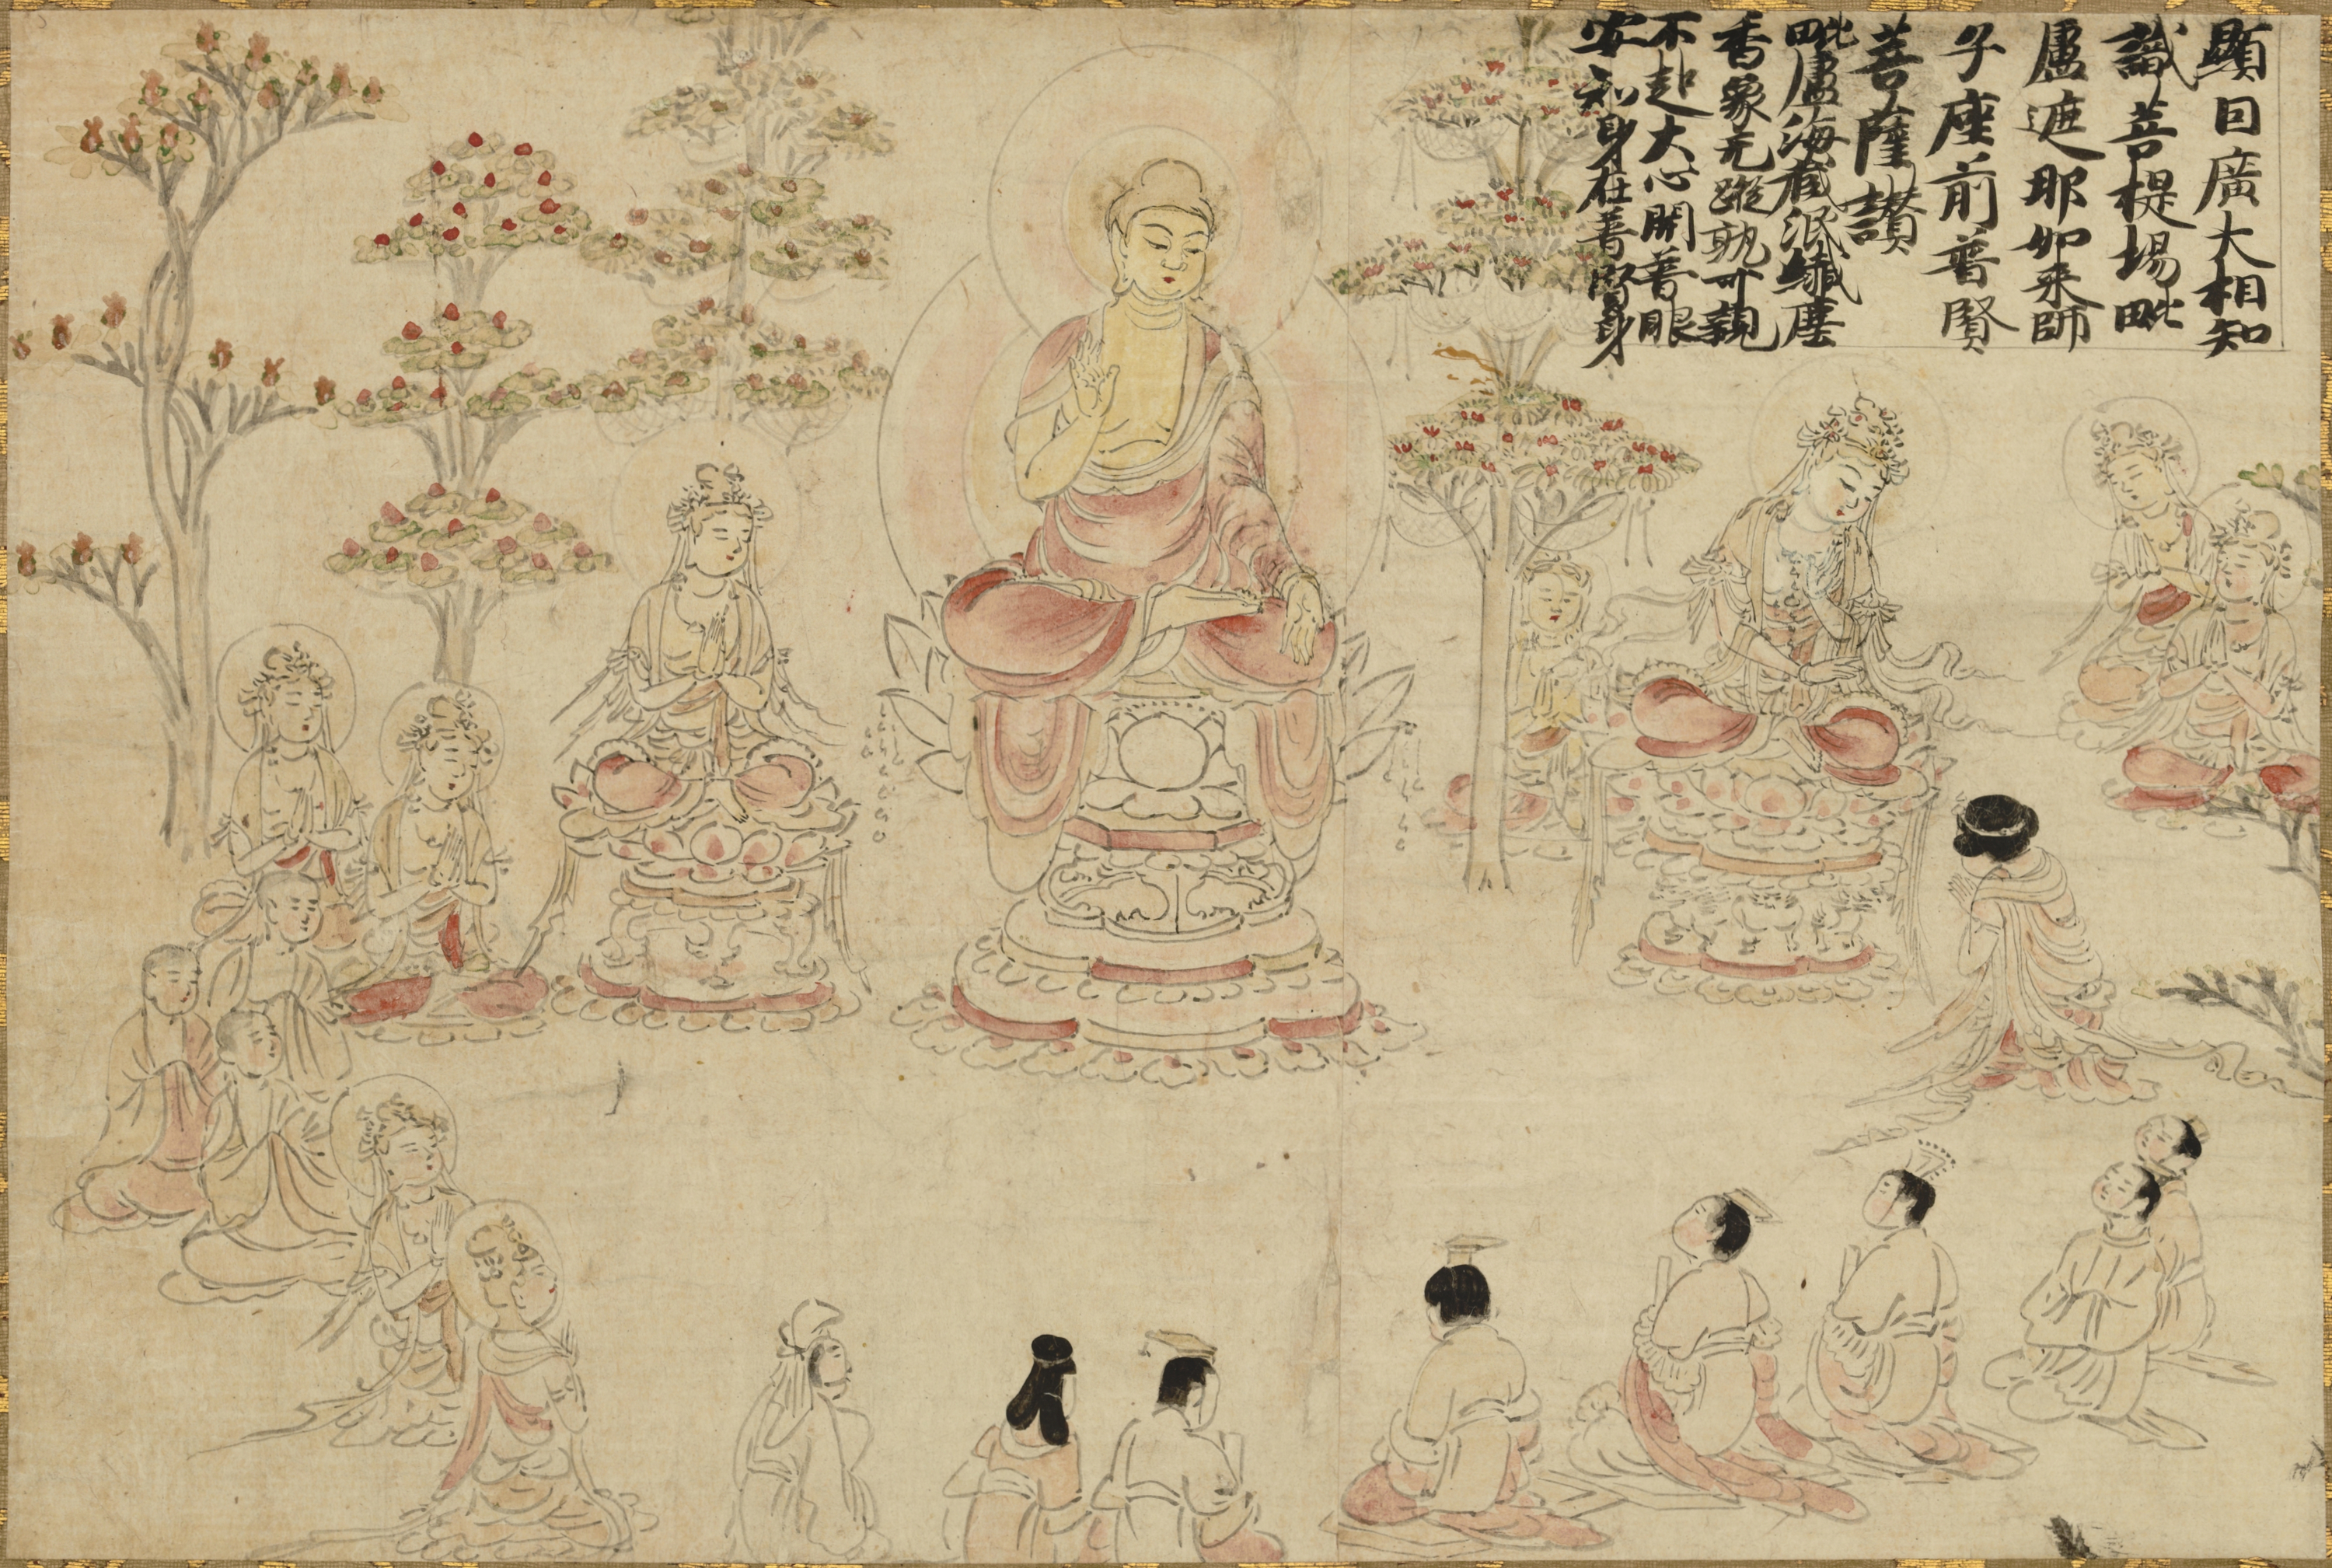 顕曰廣大相知
識菩提場毗
盧遮耶如来師
子座前普賢
菩薩讃
毗盧海蔵泯纎塵
香象无蹤孰可親
不起大心開普眼
安知身在普賢身